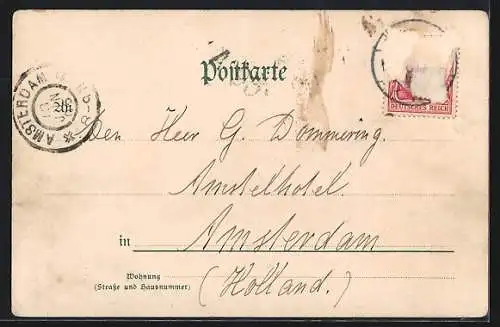 Postkarte
DEUTSCHES REICH
AMSTERDAM
Den Heer G. Dommering
Amstelhotel
in Amsterdam
Wohnung
(Straße und Hausnummer)
(Holland.)